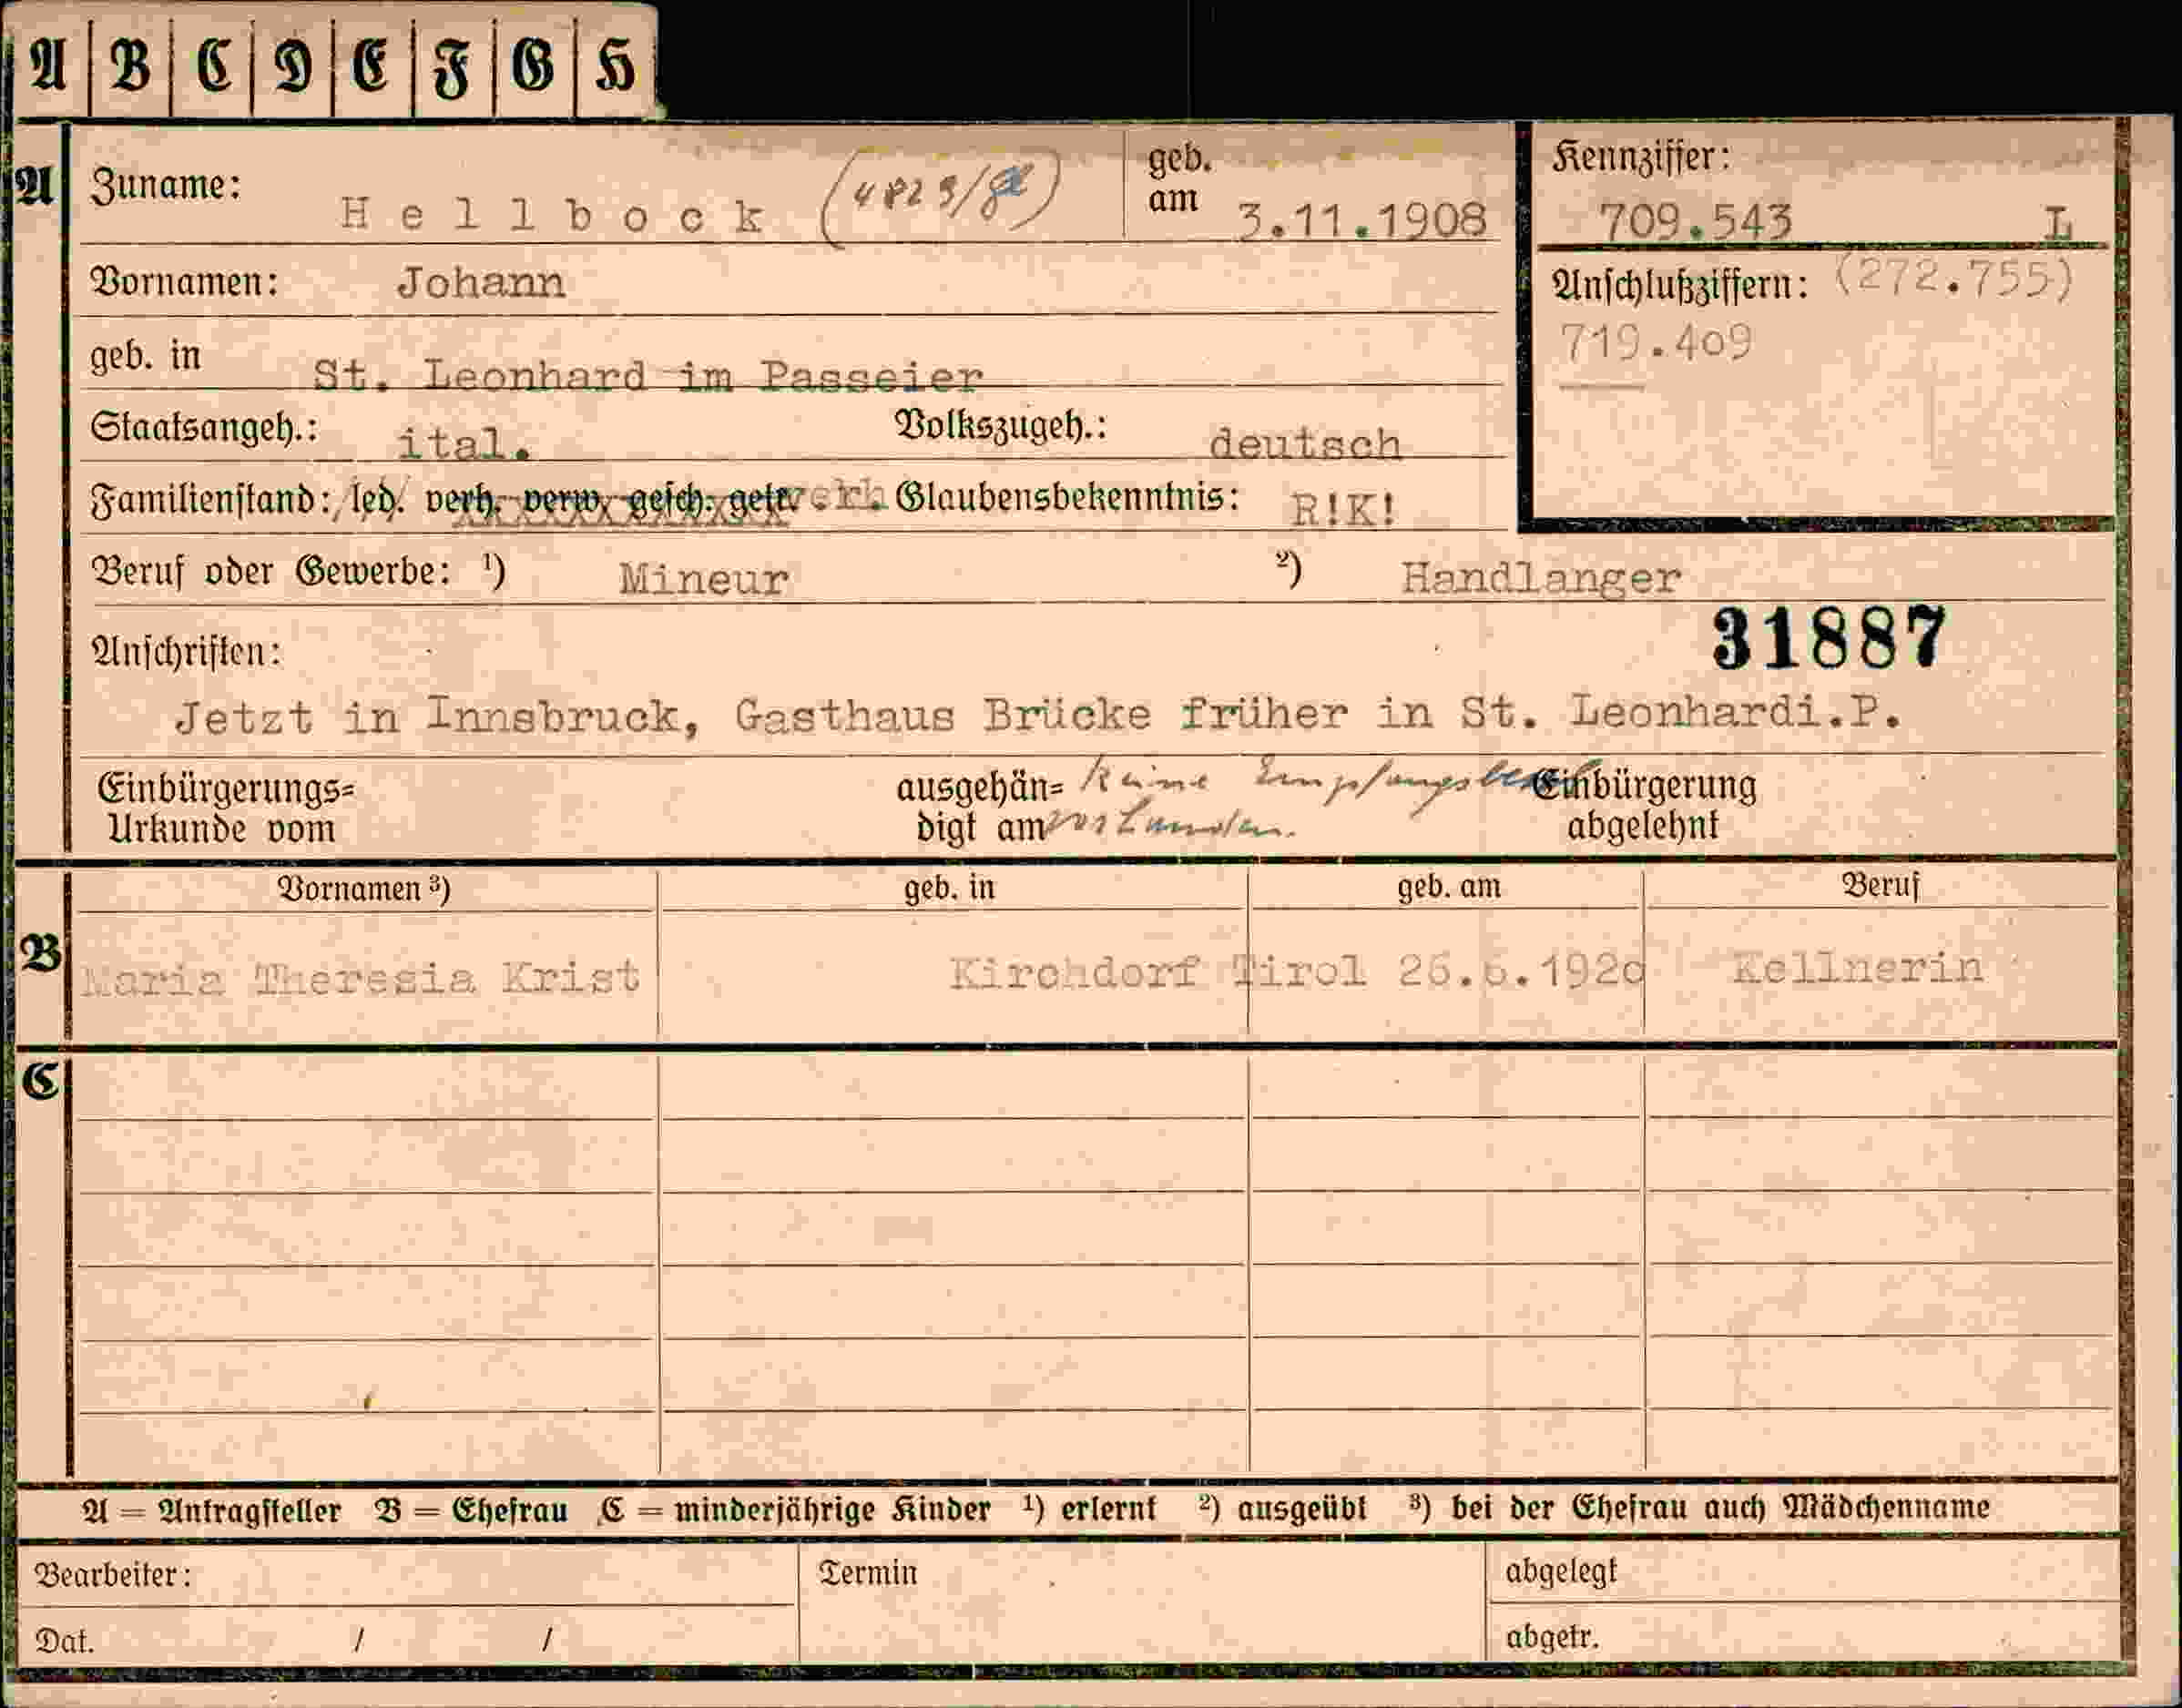 A B C D E F G H
A Zuname: Hellbock (4823/ geb. am 3.11.1908 Kennziffer: 709.543 L
Vornamen: Johann Anschlußziffern: (272.755)
719.409
geb. in St. Leonhard im Passeier
Staatsangeh.: ital. Volkszugeh.: deutsch
Familienstand: led. verh. verw. gesch. getr. verh. Glaubensbekenntnis: R!K!
Beruf oder Gewerbe: ¹) Mineur ²) Handlanger
31887
Anschriften:
Jetzt in Innsbruck, Gasthaus Brücke früher in St. Leonhardi.P.
Einbürgerungs= ausgehän= keine Einbürgerung
Urkunde vom digt am vorhanden. abgelehnt
Vornamen ³) geb. in geb. am Beruf
B Maria Theresia Krist Kirchdorf Tirol 26.6.1920 Kellnerin
C
A = Antragsteller B = Ehefrau C = minderjährige Kinder ¹) erlernt ²) ausgeübt ³) bei der Ehefrau auch Mädchenname
Bearbeiter: Termin abgelegt
Dat. / / abgetr.